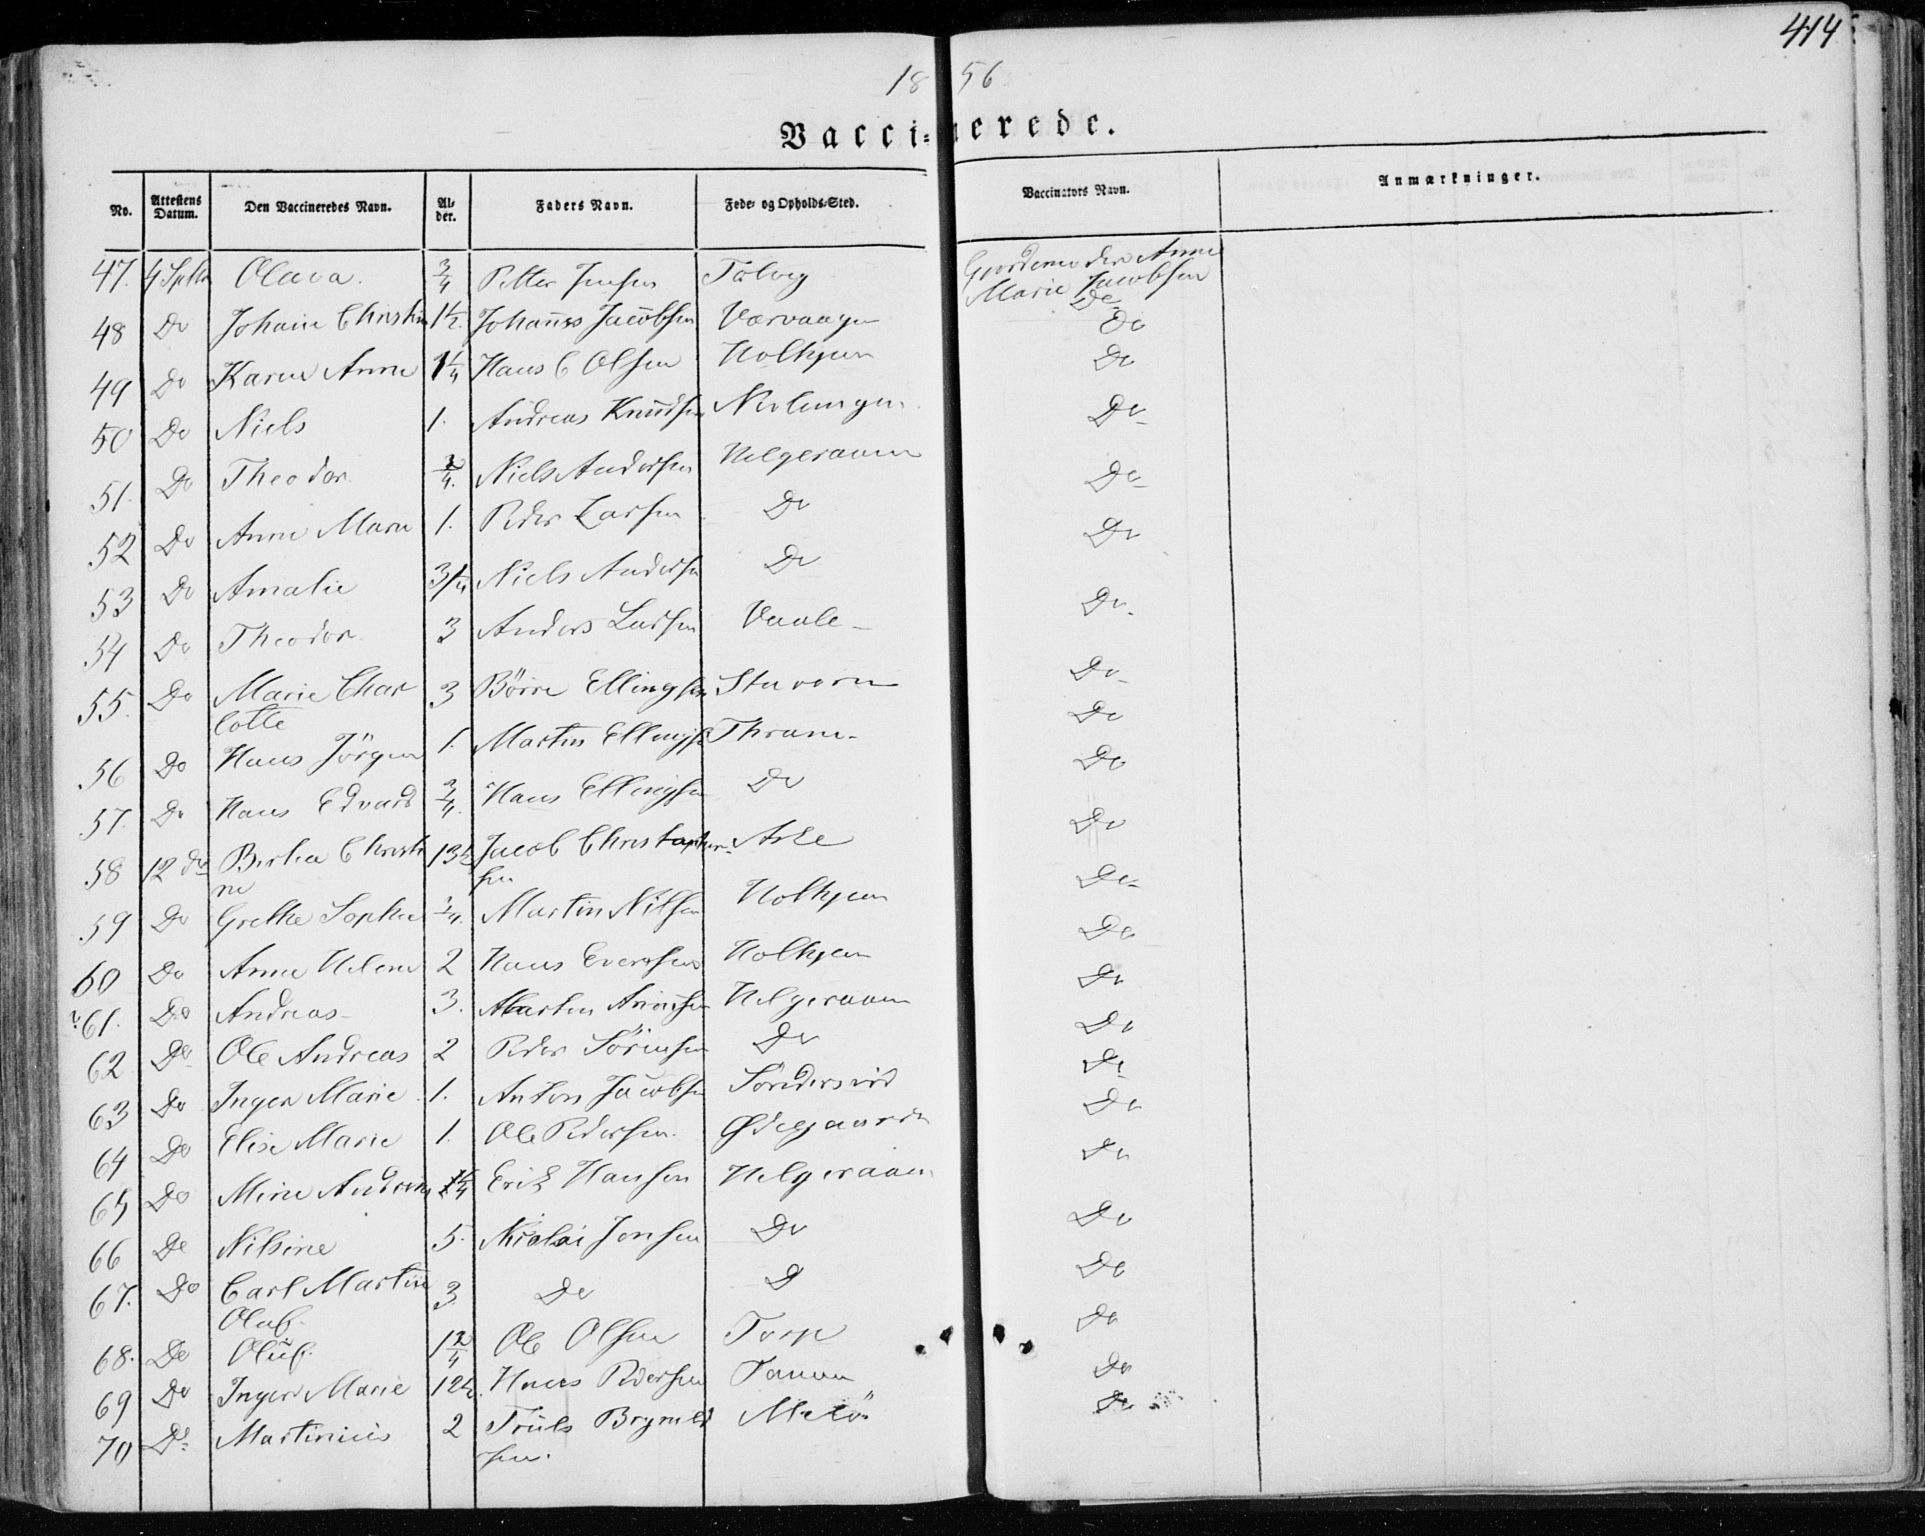 414
1856
Vaccinerede.
No. Attestens Datum. Den Vaccineredes Navn. Alder. Faders Navn. Føde- og Opholds-Sted. Vaccinators Navn. Anmærkninger.
47. 4 Septbr Olava. 3/4 Petter Jensen Tolvig Gjordemoder Anne
Marie Jacobsen
Do
48 Do Johane Christin 1 1/2. Johannes Jacobsen Varvaagen Do
49 Do Karen Anne 1 1/4 Hans C Olsen Holkjen Do
50 Do Niels 1. Andreas Knudsen Nevlungen Do
51. Do Theodor 3/4. Niels Andersen Helgeraaen Do
52 Do Anne Marie 1. Peder Larsen Do Do
53 Do Amalie 3 1/4 Niels Andersen Do Do.
54 Do Theodor 3 Anders Larsen Vaale Do
55. Do Marie Char 3 Börre Ellingsen Stavern Do
lotte
56 Do Hans Jörgen 1. Martin Ellingsen Thrane Do
57. Do Hans Edvard 3/4. Hans Ellingsen Do Do
58 12 do Berthe Christi 13 1/2 Jacob Christopher- Aske Do
ne sen
59 Do Grethe Sophie 3/4. Martin Nilsen Holkjen Do
60 Do Anne Helene 2 Hans Evensen Holkjen Do
61. Do Andreas 3. Martin Helgeraaen Do
62 Do Ole Andreas 2 Peder Sörensen Do Do
63 Do Inger Marie 1. Anton Jacobsen Söndersröd Do
64 Do Elise Marie 1. Ole Pedersen. Ødegaarden Do
65 Do Mine Andrine 1 1/4 Erik Hansen Helgeraaen Do
66 Do Nilsine 5. Nicolai Jensen Do Do
67. Do Carl Martin 3. Do D Do
Oluf.
68. Do Oluf. 1 2/4 Ole Olsen Torp Do
69 Do Inger Marie 12 1/2. Hans Pedersen Tanum Do
70 Do Martinius 2 Truls Brynild Melö Do
sen.